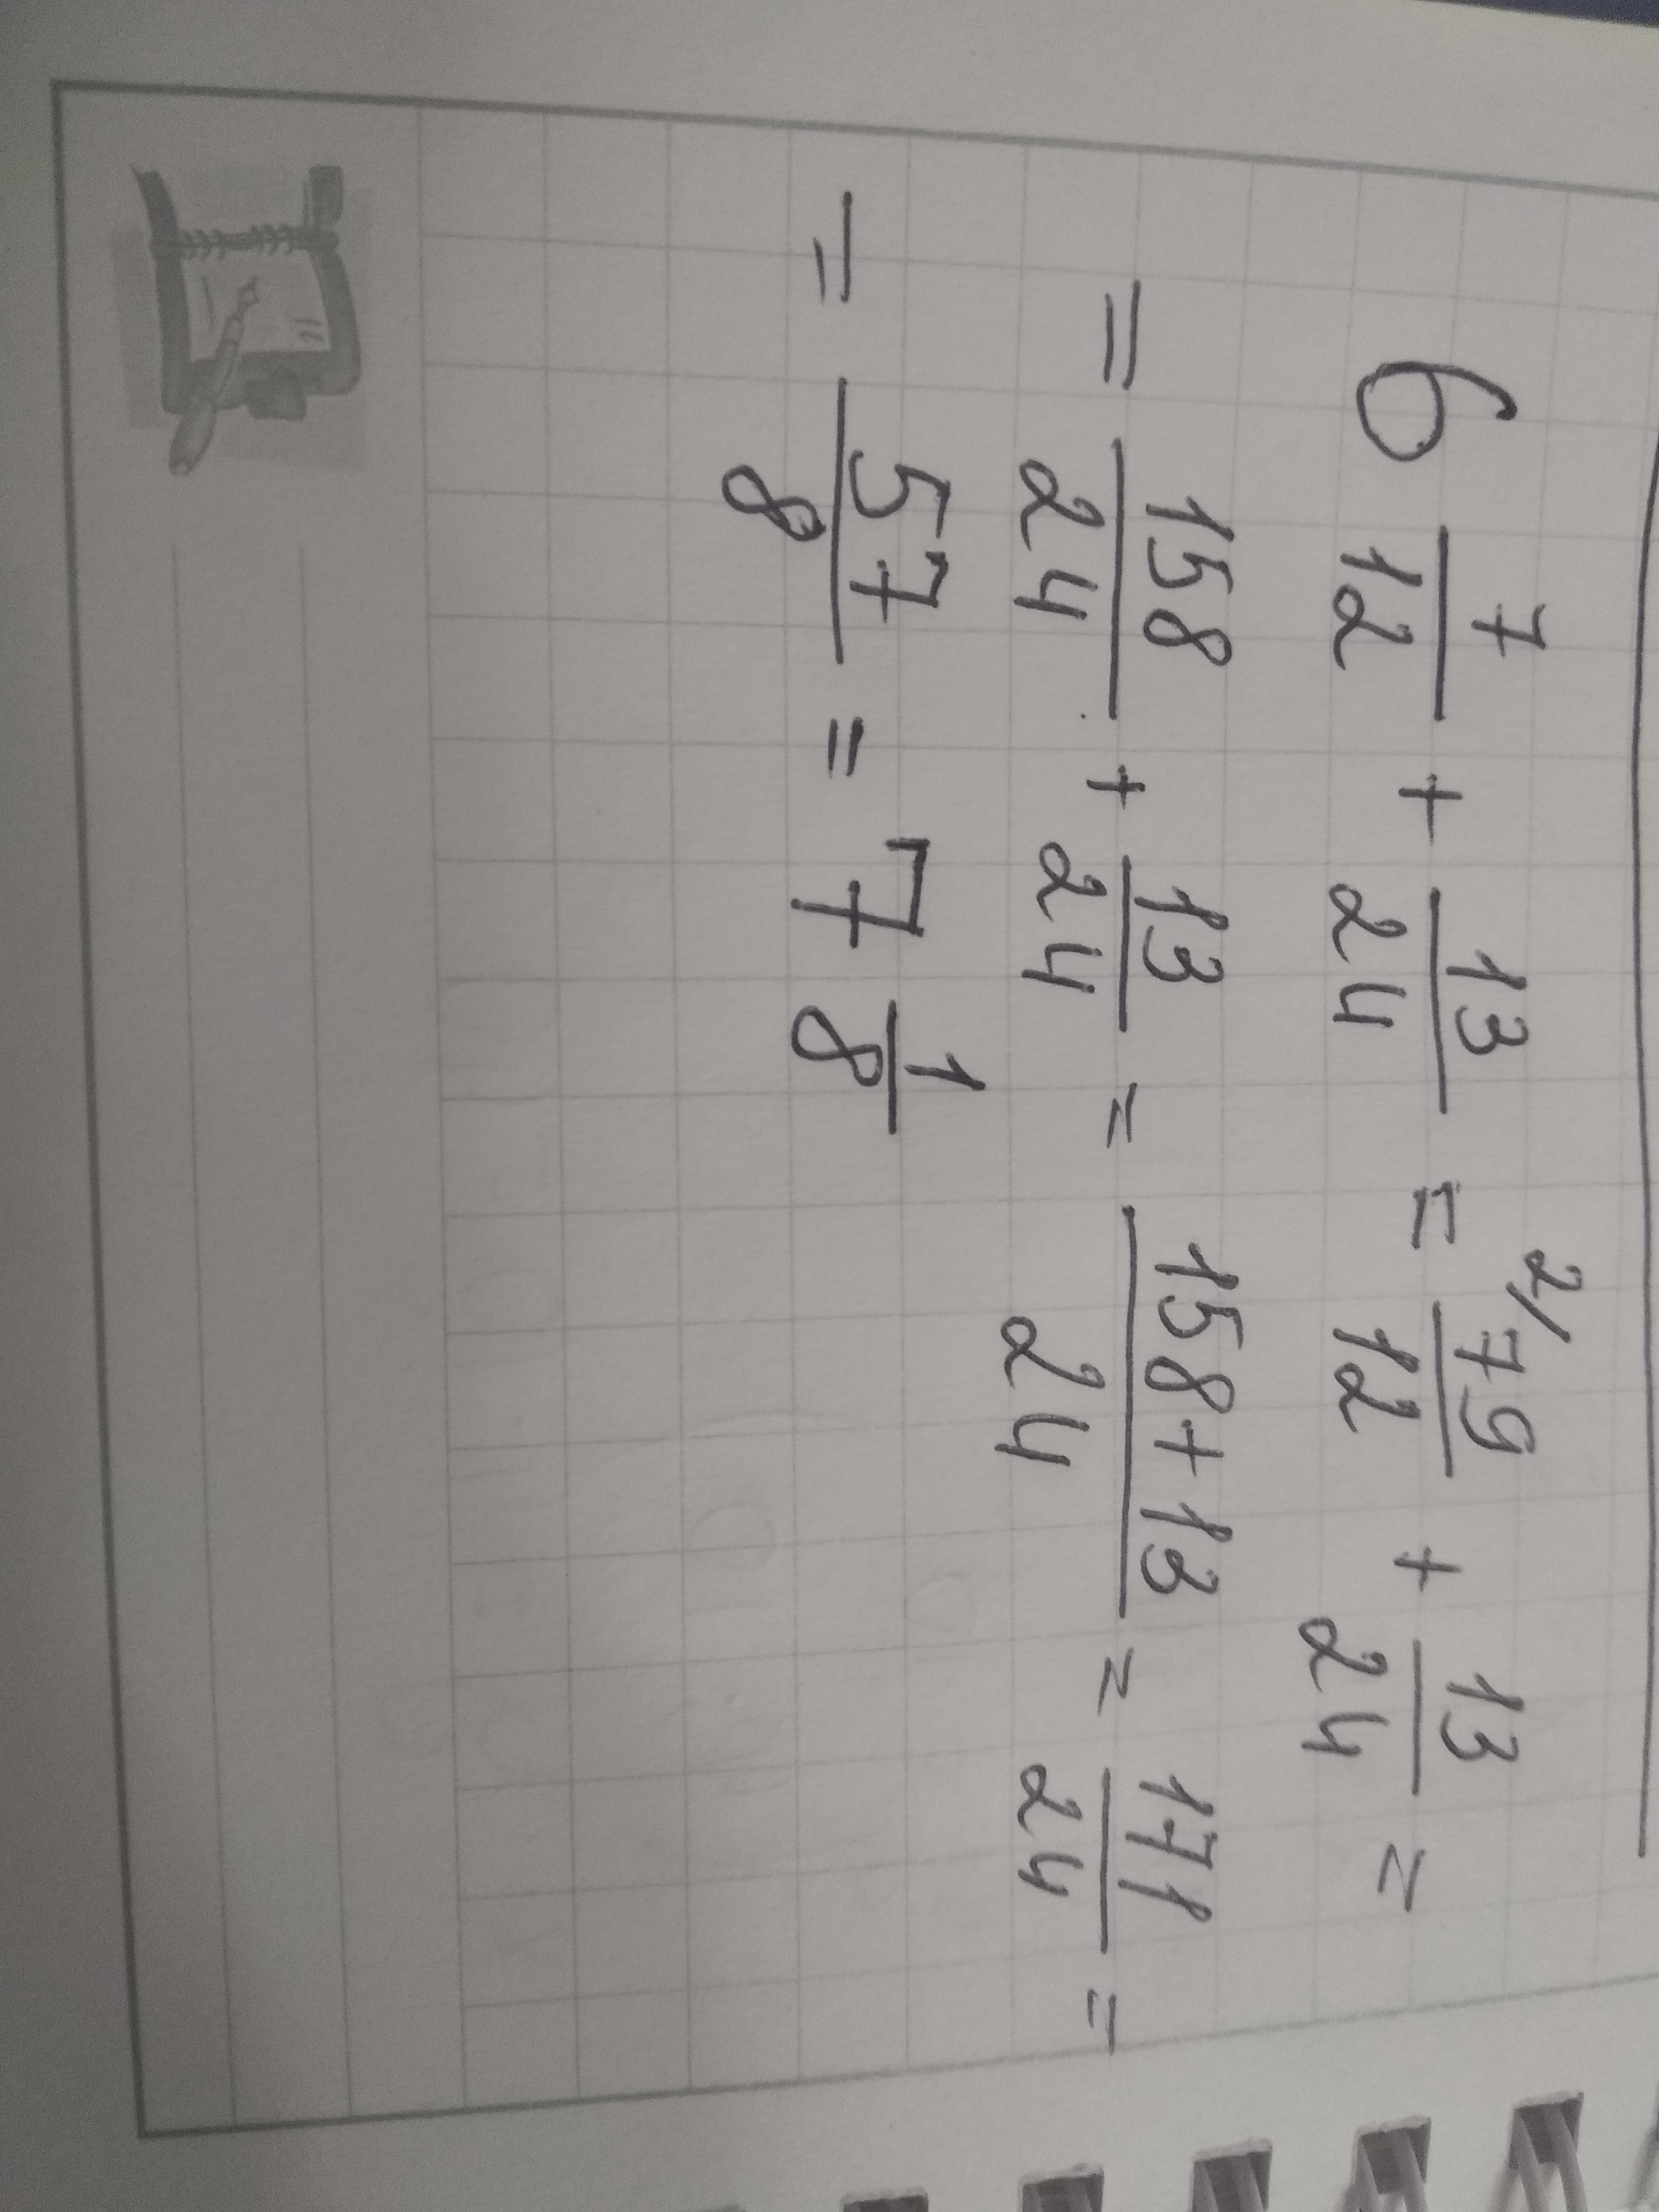 6 7/12 + 13/24 = 2/ 79/12 + 13/24 =
= 158/24 + 13/24 = 158+13/24 = 171/24 =
= 57/8 = 7 1/8